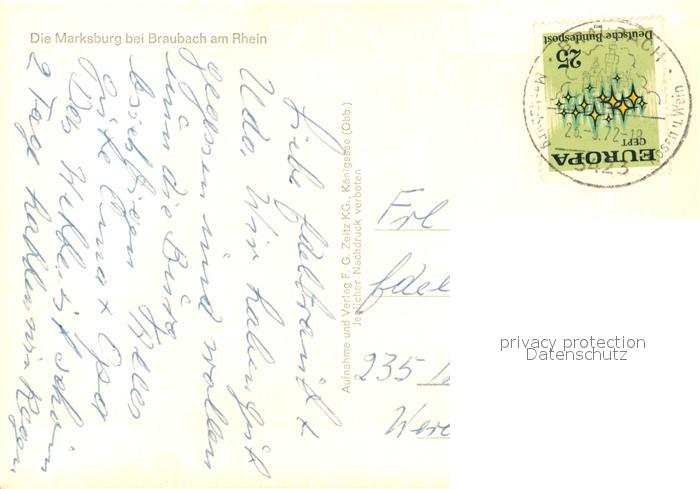 Die Marksburg bei Braubach am Rhein
Liebe Edeltraud +
Udo. Wir haben gut
gegessen und wollen
nun die Burg
besichtigen Alles
Gute Oma + Opa
Das Wetter ist schön
2 Tage hatten wir Regen
Aufnahme und Verlag F. G. Zeitz KG., Königssee (Obb.)
Jeglicher Nachdruck verboten
Frl
Edel
235
Deutsche Bundespost
25
EUROPA
CEPT
Rosen u. Wein
5423
privacy protection
Datenschutz